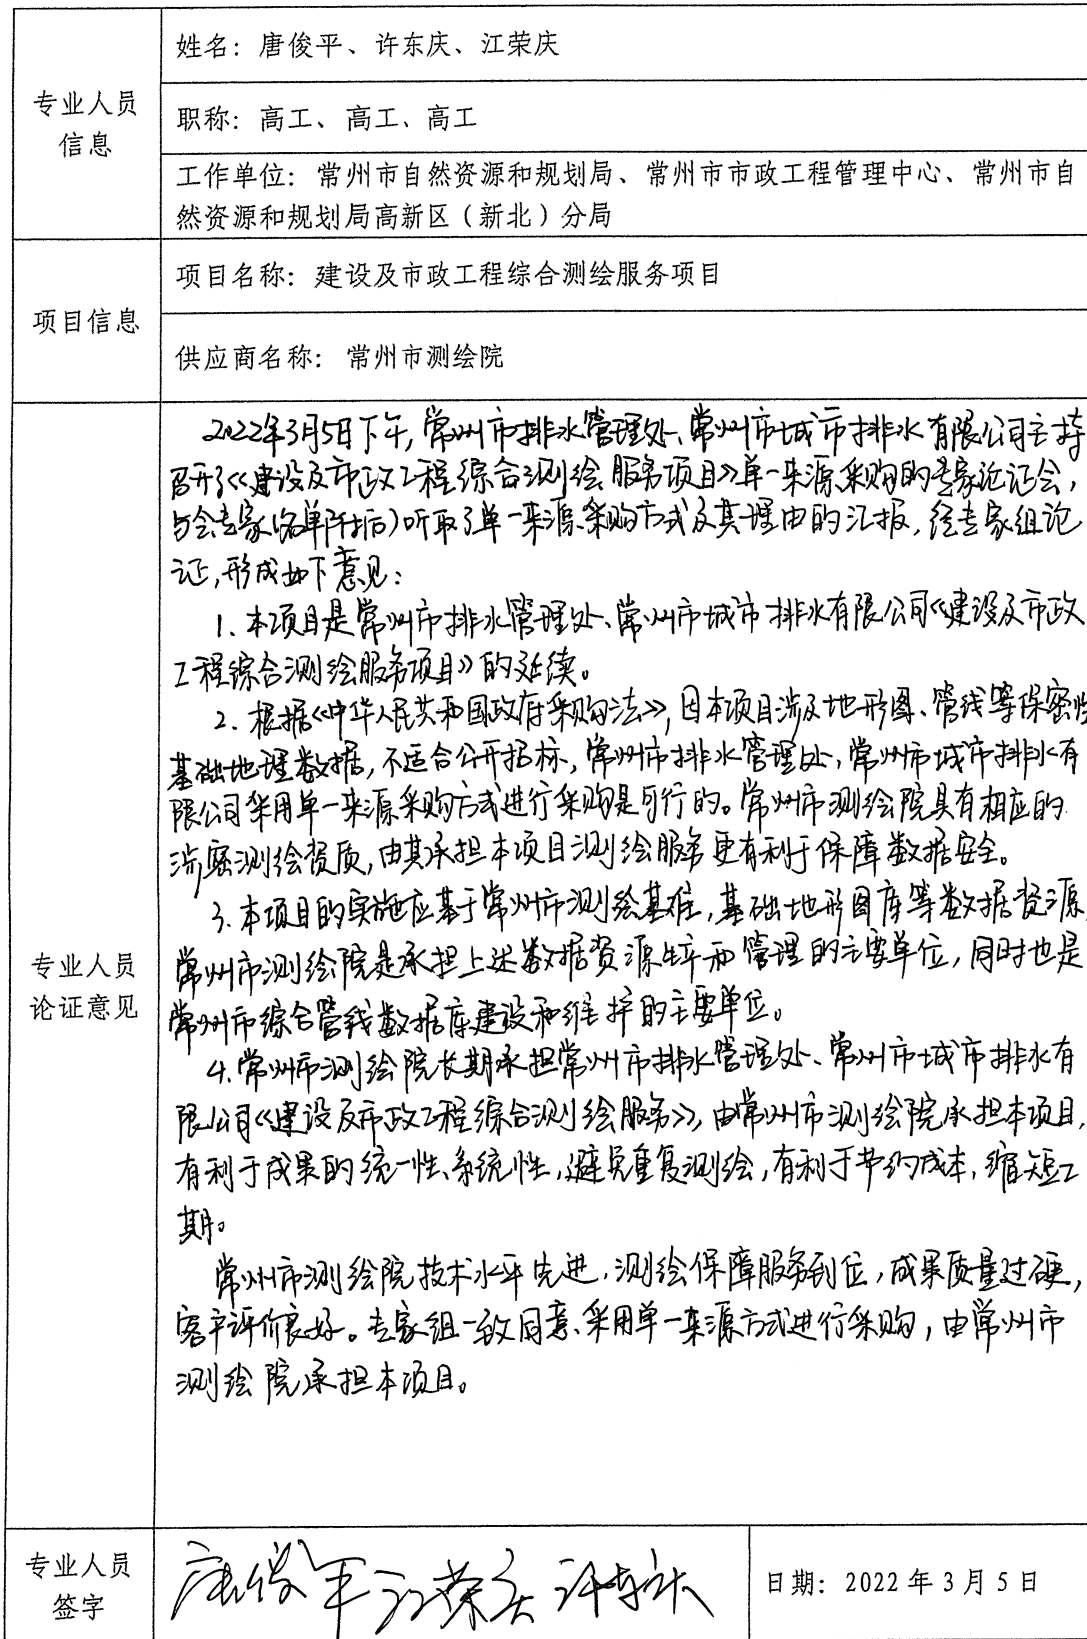 专业人员
信息
姓名：唐俊平、许东庆、江荣庆
职称：高工、高工、高工
工作单位：常州市自然资源和规划局、常州市市政工程管理中心、常州市自
然资源和规划局高新区（新北）分局
项目信息
项目名称：建设及市政工程综合测绘服务项目
供应商名称： 常州市测绘院
专业人员
论证意见
2022年3月5日下午，常州市排水管理处、常州市城市排水有限公司主持
召开了《建设及市政工程综合测绘服务项目》单一来源采购的专家论证会，
与会专家（名单附后）听取了单一来源采购方式及其理由的汇报，经专家组论
证，形成如下意见：
1. 本项目是常州市排水管理处、常州市城市排水有限公司《建设及市政
工程综合测绘服务项目》的延续。
2. 根据《中华人民共和国政府采购法》，因本项目涉及地形图、管线等保密性
基础地理数据，不适合公开招标，常州市排水管理处、常州市城市排水有
限公司采用单一来源采购方式进行采购是可行的。常州市测绘院具有相应的
涉密测绘资质，由其承担本项目测绘服务更有利于保障数据安全。
3. 本项目的实施应基于常州市测绘基准，基础地形图库等数据资源，
常州市测绘院是承担上述数据资源生产和管理的主要单位，同时也是
常州市综合管线数据库建设和维护的主要单位。
4. 常州市测绘院长期承担常州市排水管理处、常州市城市排水有
限公司《建设及市政工程综合测绘服务》，由常州市测绘院承担本项目，
有利于成果的统一性、系统性，避免重复测绘，有利于节约成本，缩短工
期。
常州市测绘院技术水平先进，测绘保障服务到位，成果质量过硬，
客户评价良好。专家组一致同意采用单一来源方式进行采购，由常州市
测绘院承担本项目。
专业人员
签字
唐俊平 江荣庆 许东庆
日期：2022年3月5日